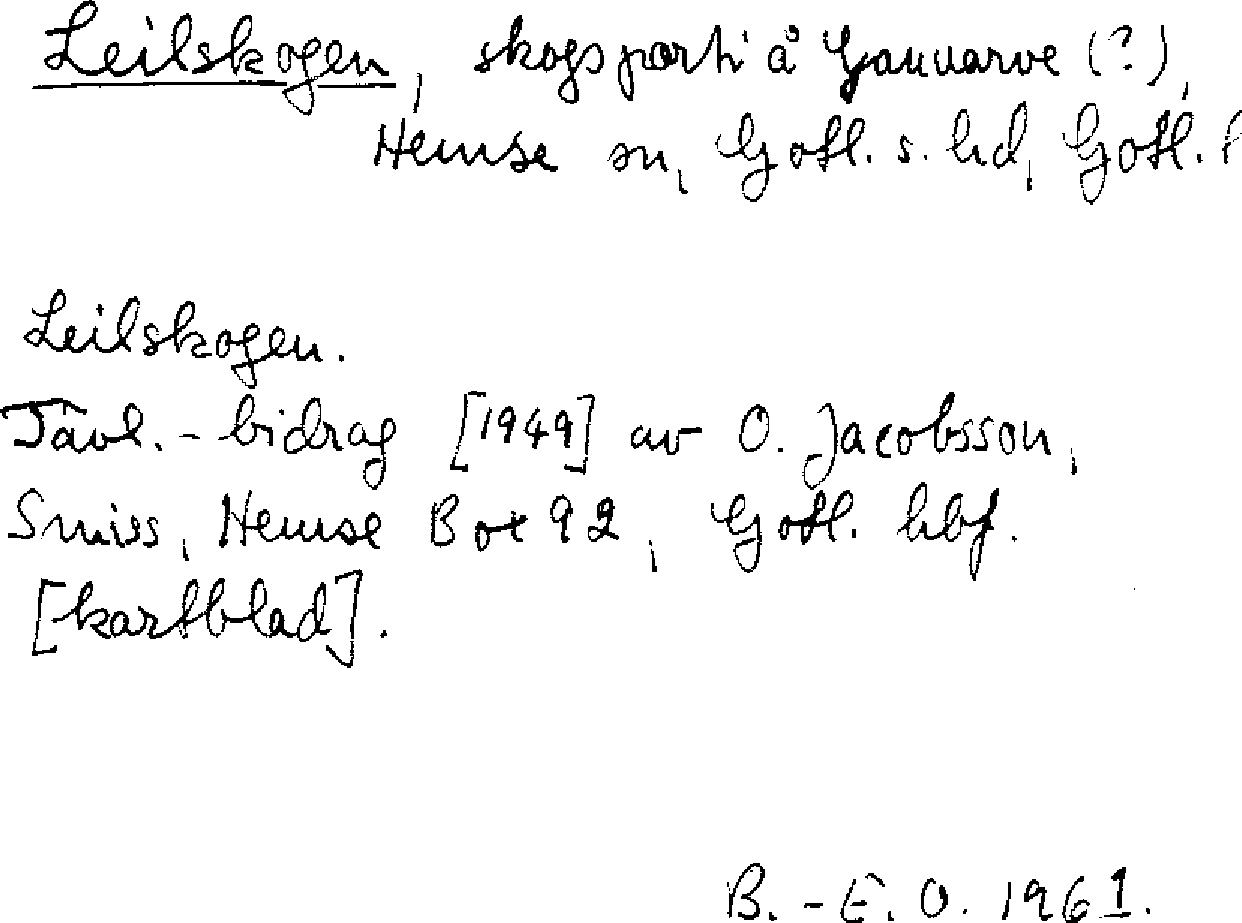 Leilskogen, skogsparti å Gannarve (?),
Hemse sn, Gotl. s. hd, Gotl.
Leilskogen.
Tävl.-bidrag [1949] av O. Jacobsson,
Smiss, Hemse Box 92, Gotl. hbf.
[kartblad].
B.-E. O. 1961.